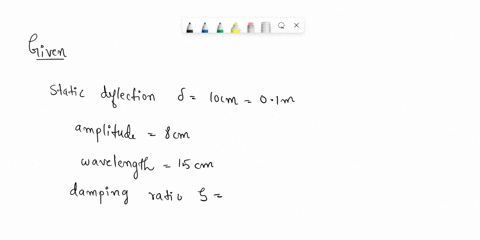 Given
Static deflection δ = 10cm = 0.1m
amplitude = 8cm
wavelength = 15cm
damping ratio ζ =